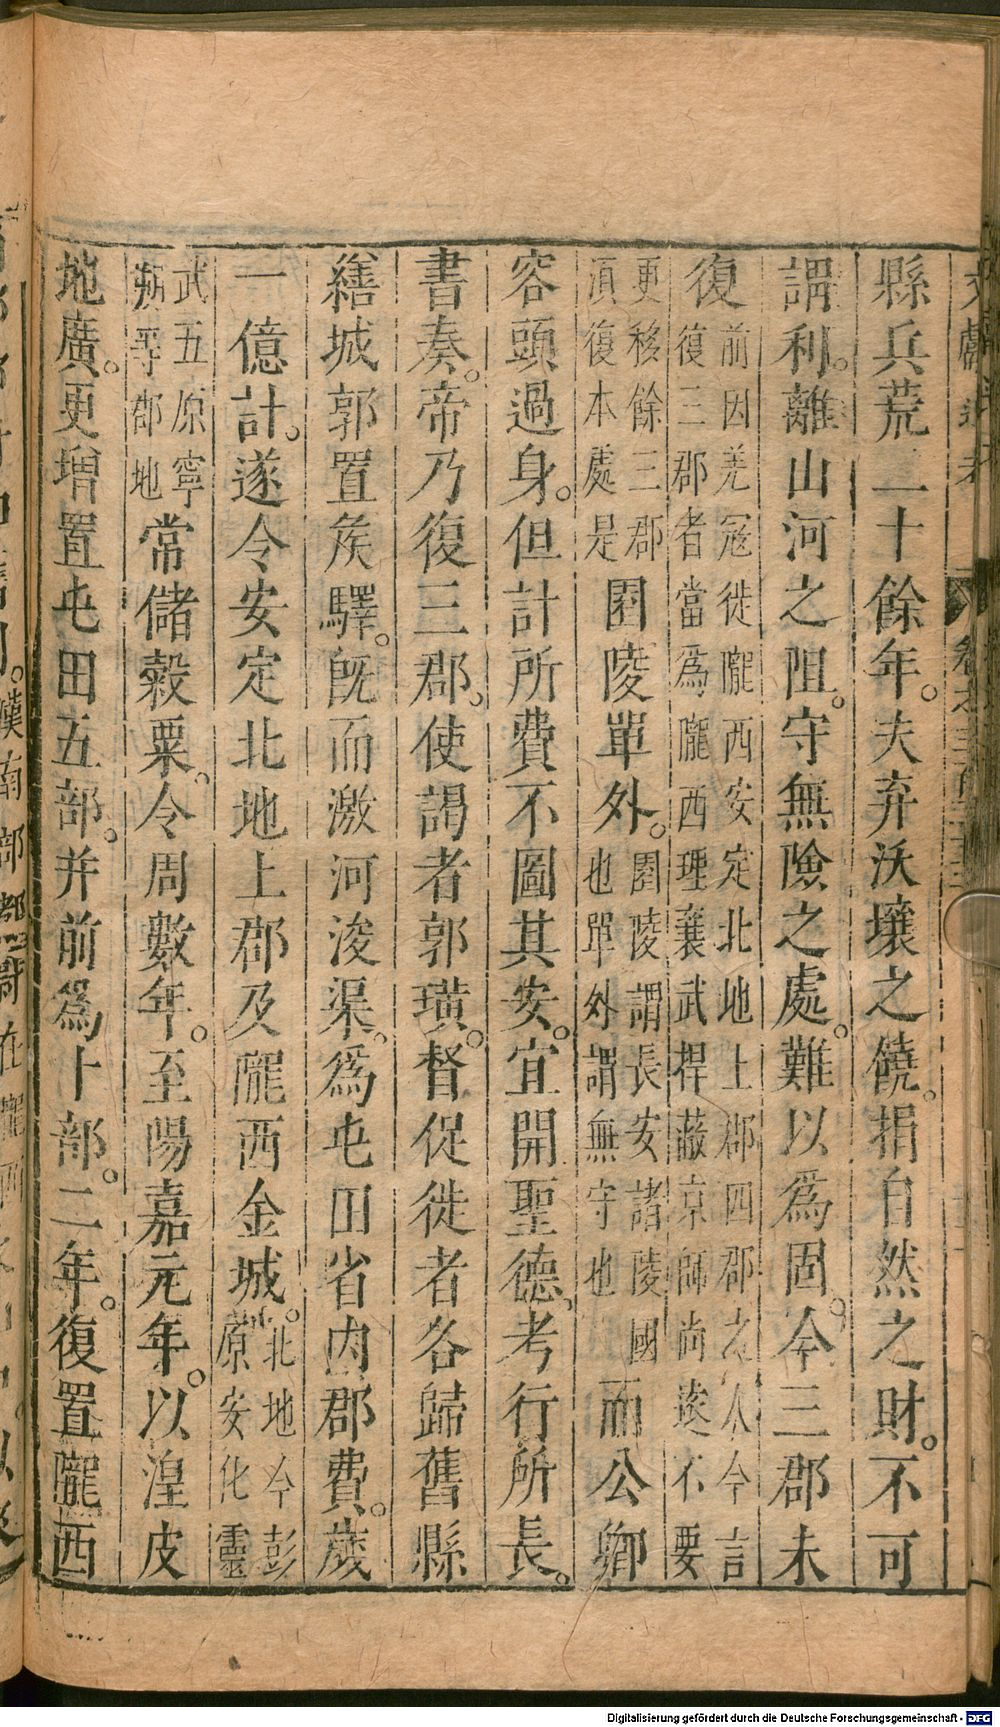 縣兵荒二十餘年。夫弃沃壤之饒。捐自然之財。不可
謂利。離山河之阻。守無險之處。難以爲固。今三郡未
復前因羌寇徙隴西安定北地上郡四郡之人今言
復三郡者當爲隴西理襄武捍蔽京師尚遂不要
更移餘三郡
須復本處是園陵單外。園陵謂長安諸陵國
也單外謂無守也而公卿
容頭過身。但計所費。不圖其安。宜開聖德。考行所長。
書奏。帝乃復三郡。使謁者郭璜。督促徙者各歸舊縣
繕城郭置矦驛。旣而激河浚渠。爲屯田省內郡費。歲
一億計。遂令安定北地上郡及隴西金城。北地今彭
原安化靈
武五原寧
朔等郡地常儲糓粟。令周數年。至陽嘉元年。以湟皮
地廣。更增置屯田五部。并前爲十部。二年。復置隴西
Digitalisierung gefördert durch die Deutsche Forschungsgemeinschaft - DFG